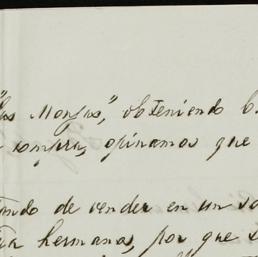 las Monjas", obteniendo
compra, opinamos que
de vender en un
hermanos, por que